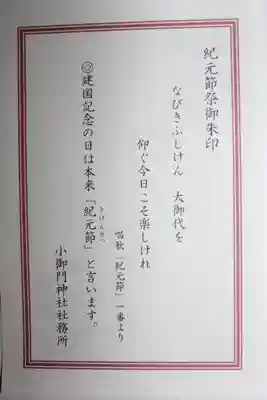 紀元節祭御朱印
なびきふしけん 大御代を
仰ぐ今日こそ楽しけれ
唱歌「紀元節」一番より
◎建国記念の日は本来「紀元節」と言います。
きげんせつ
小御門神社社務所